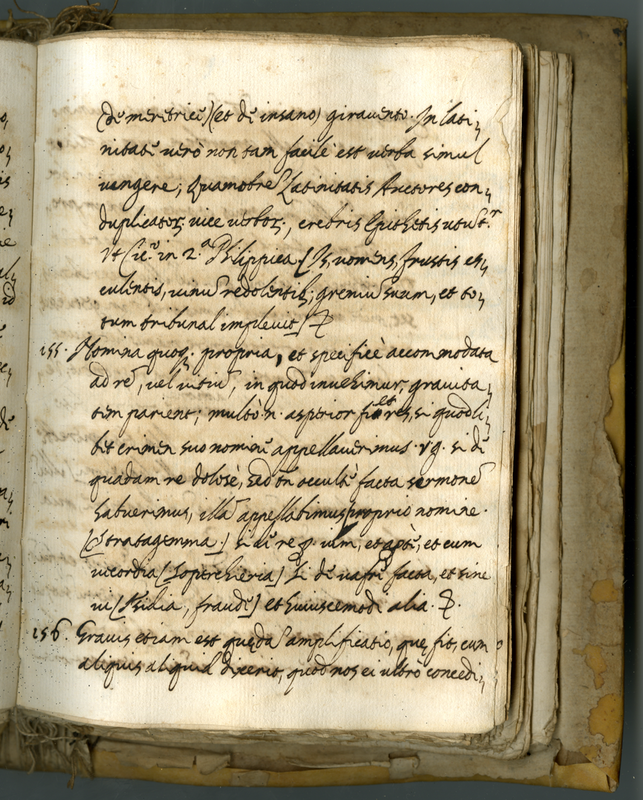 (de meretricẽ) (et de insano) giravento. In lati,
nitatẽ verò non tam facilè est verba simul
iungere; Quamobrẽ Latinitatis Auctores con,
duplicator. vice verbor., crebris Epithetis utut.r
Vt Cic.o in 2.a Philippica (Is, vomens, frustis es,
culentis, vinũ redolentib., gremiũ suum, et to,
tum tribunal implevit)
155. Nomina quoq. propria, et specificè accommodata
ad rẽ, vel vitiũ, in quod invehimur, gravita,
tem parient; multò n. asperior fiet res, si quodli,
bet crimen suo nominẽ appellaverimus. vg. si dẽ
quadam re dolosè, sed tñ occultẽ facta sermonẽ
habuerimus, illã appellabimus proprio nomine.
(Stratagemma.) si dẽ re p. vim, et aptè, et cum
vecordia (soperchieria) si dẽ vafrẽ facta, et sine
vi (Biliã, fraudẽ) et huiuscemodi alia.
156. Gravis etiam est quędã amplificatio, quę fit, cum
aliquis aliquid dixerit, quod nos ei ultrò concedi,